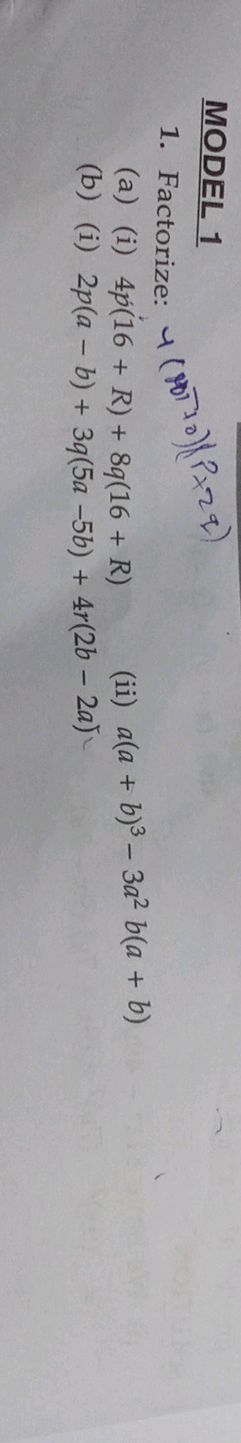 MODEL 1
1. Factorize:
(a) (i) 4p(16 + R) + 8q(16 + R) (ii) a(a + b)³ – 3a² b(a + b)
(b) (i) 2p(a – b) + 3q(5a –5b) + 4r(2b – 2a)